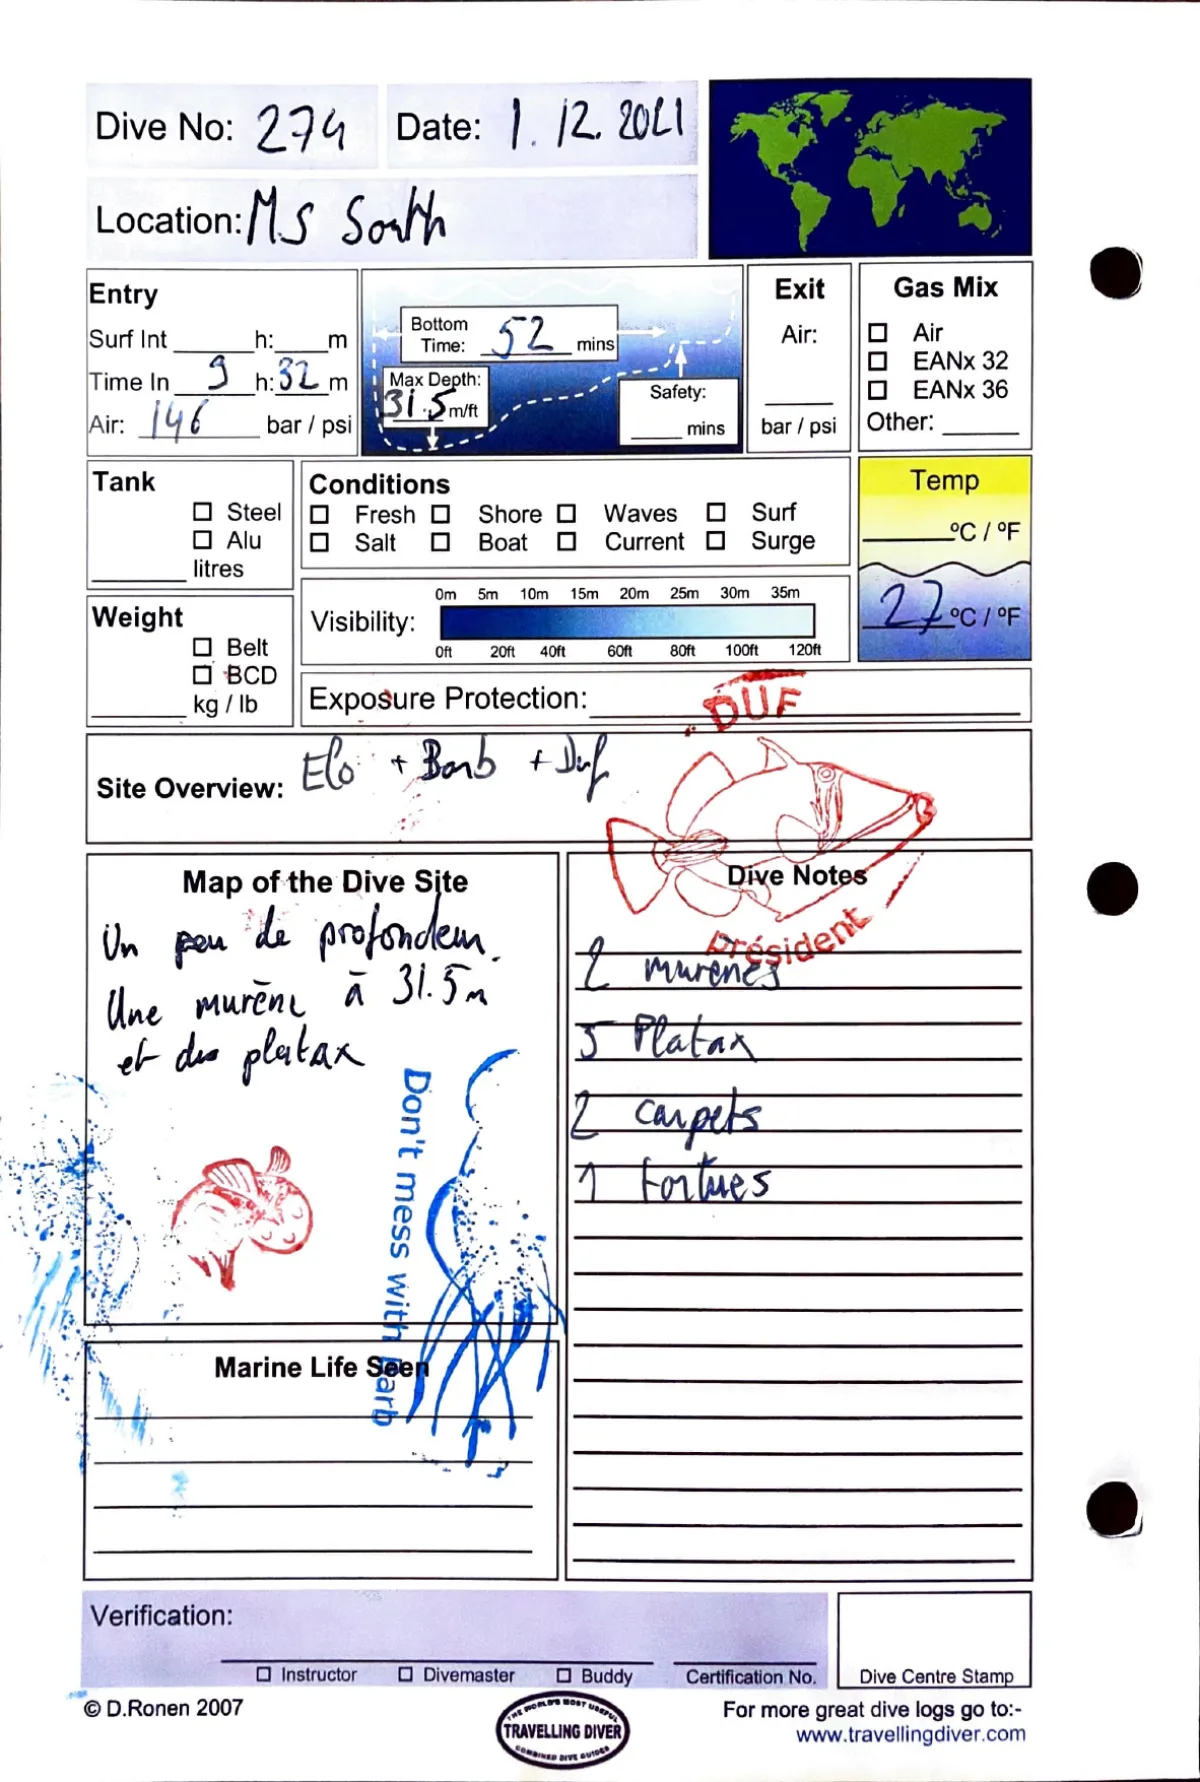 Dive No: 274 Date: 1. 12. 2021
Location: MS South
Entry
Surf Int ______ h: ____ m
Time In 9 h: 32 m
Air: 146 bar / psi
Bottom
Time: 52 mins
Max Depth:
31.5 m/ft
Safety:
_____ mins
Exit
Air:
______
bar / psi
Gas Mix
☐ Air
☐ EANx 32
☐ EANx 36
Other: ______
Tank
☐ Steel
☐ Alu
______ litres
Weight
☐ Belt
☐ BCD
______ kg / lb
Conditions
☐ Fresh ☐ Shore ☐ Waves ☐ Surf
☐ Salt ☐ Boat ☐ Current ☐ Surge
0m 5m 10m 15m 20m 25m 30m 35m
Visibility:
0ft 20ft 40ft 60ft 80ft 100ft 120ft
Temp
______ ºC / ºF
27 ºC / ºF
Exposure Protection:
DUF
Site Overview: Elo + Barb + Duf
président
Map of the Dive Site
Un peu de profondeur.
Une murène à 31.5m
et des platax
Don't mess with barb
Marine Life Seen
Dive Notes
2 murènes
5 Platax
2 carpets
1 tortues
Verification:
☐ Instructor ☐ Divemaster ☐ Buddy Certification No.
Dive Centre Stamp
© D.Ronen 2007
THE WORLD'S MOST USEFUL
TRAVELLING DIVER
COMBINED DIVE GUIDES
For more great dive logs go to:-
www.travellingdiver.com